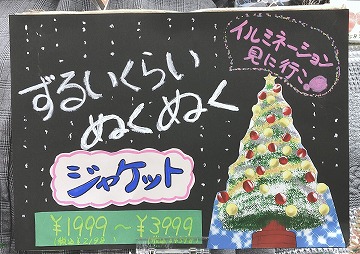 イルミネーション
見に行こ
ずるいくらい
ぬくぬく
ジャケット
¥1999～¥3999